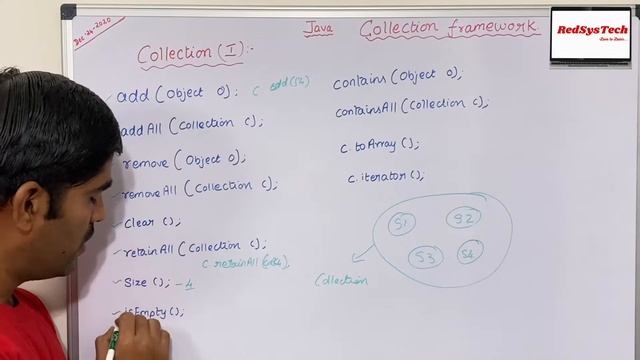 Dec-24-2020
Java Collection framework.
RedSysTech
Collection (I):-
add (Object o); C add(S2)
addAll (Collection c);
remove (Object o);
removeAll (Collection c);
clear ();
retainAll (Collection c);
C retainAll
Size (); - 4
isEmpty ();
contains (Object o);
containsAll (Collection c);
c.toArray ();
c.iterator ();
S1 S2
S3 S4
Collection